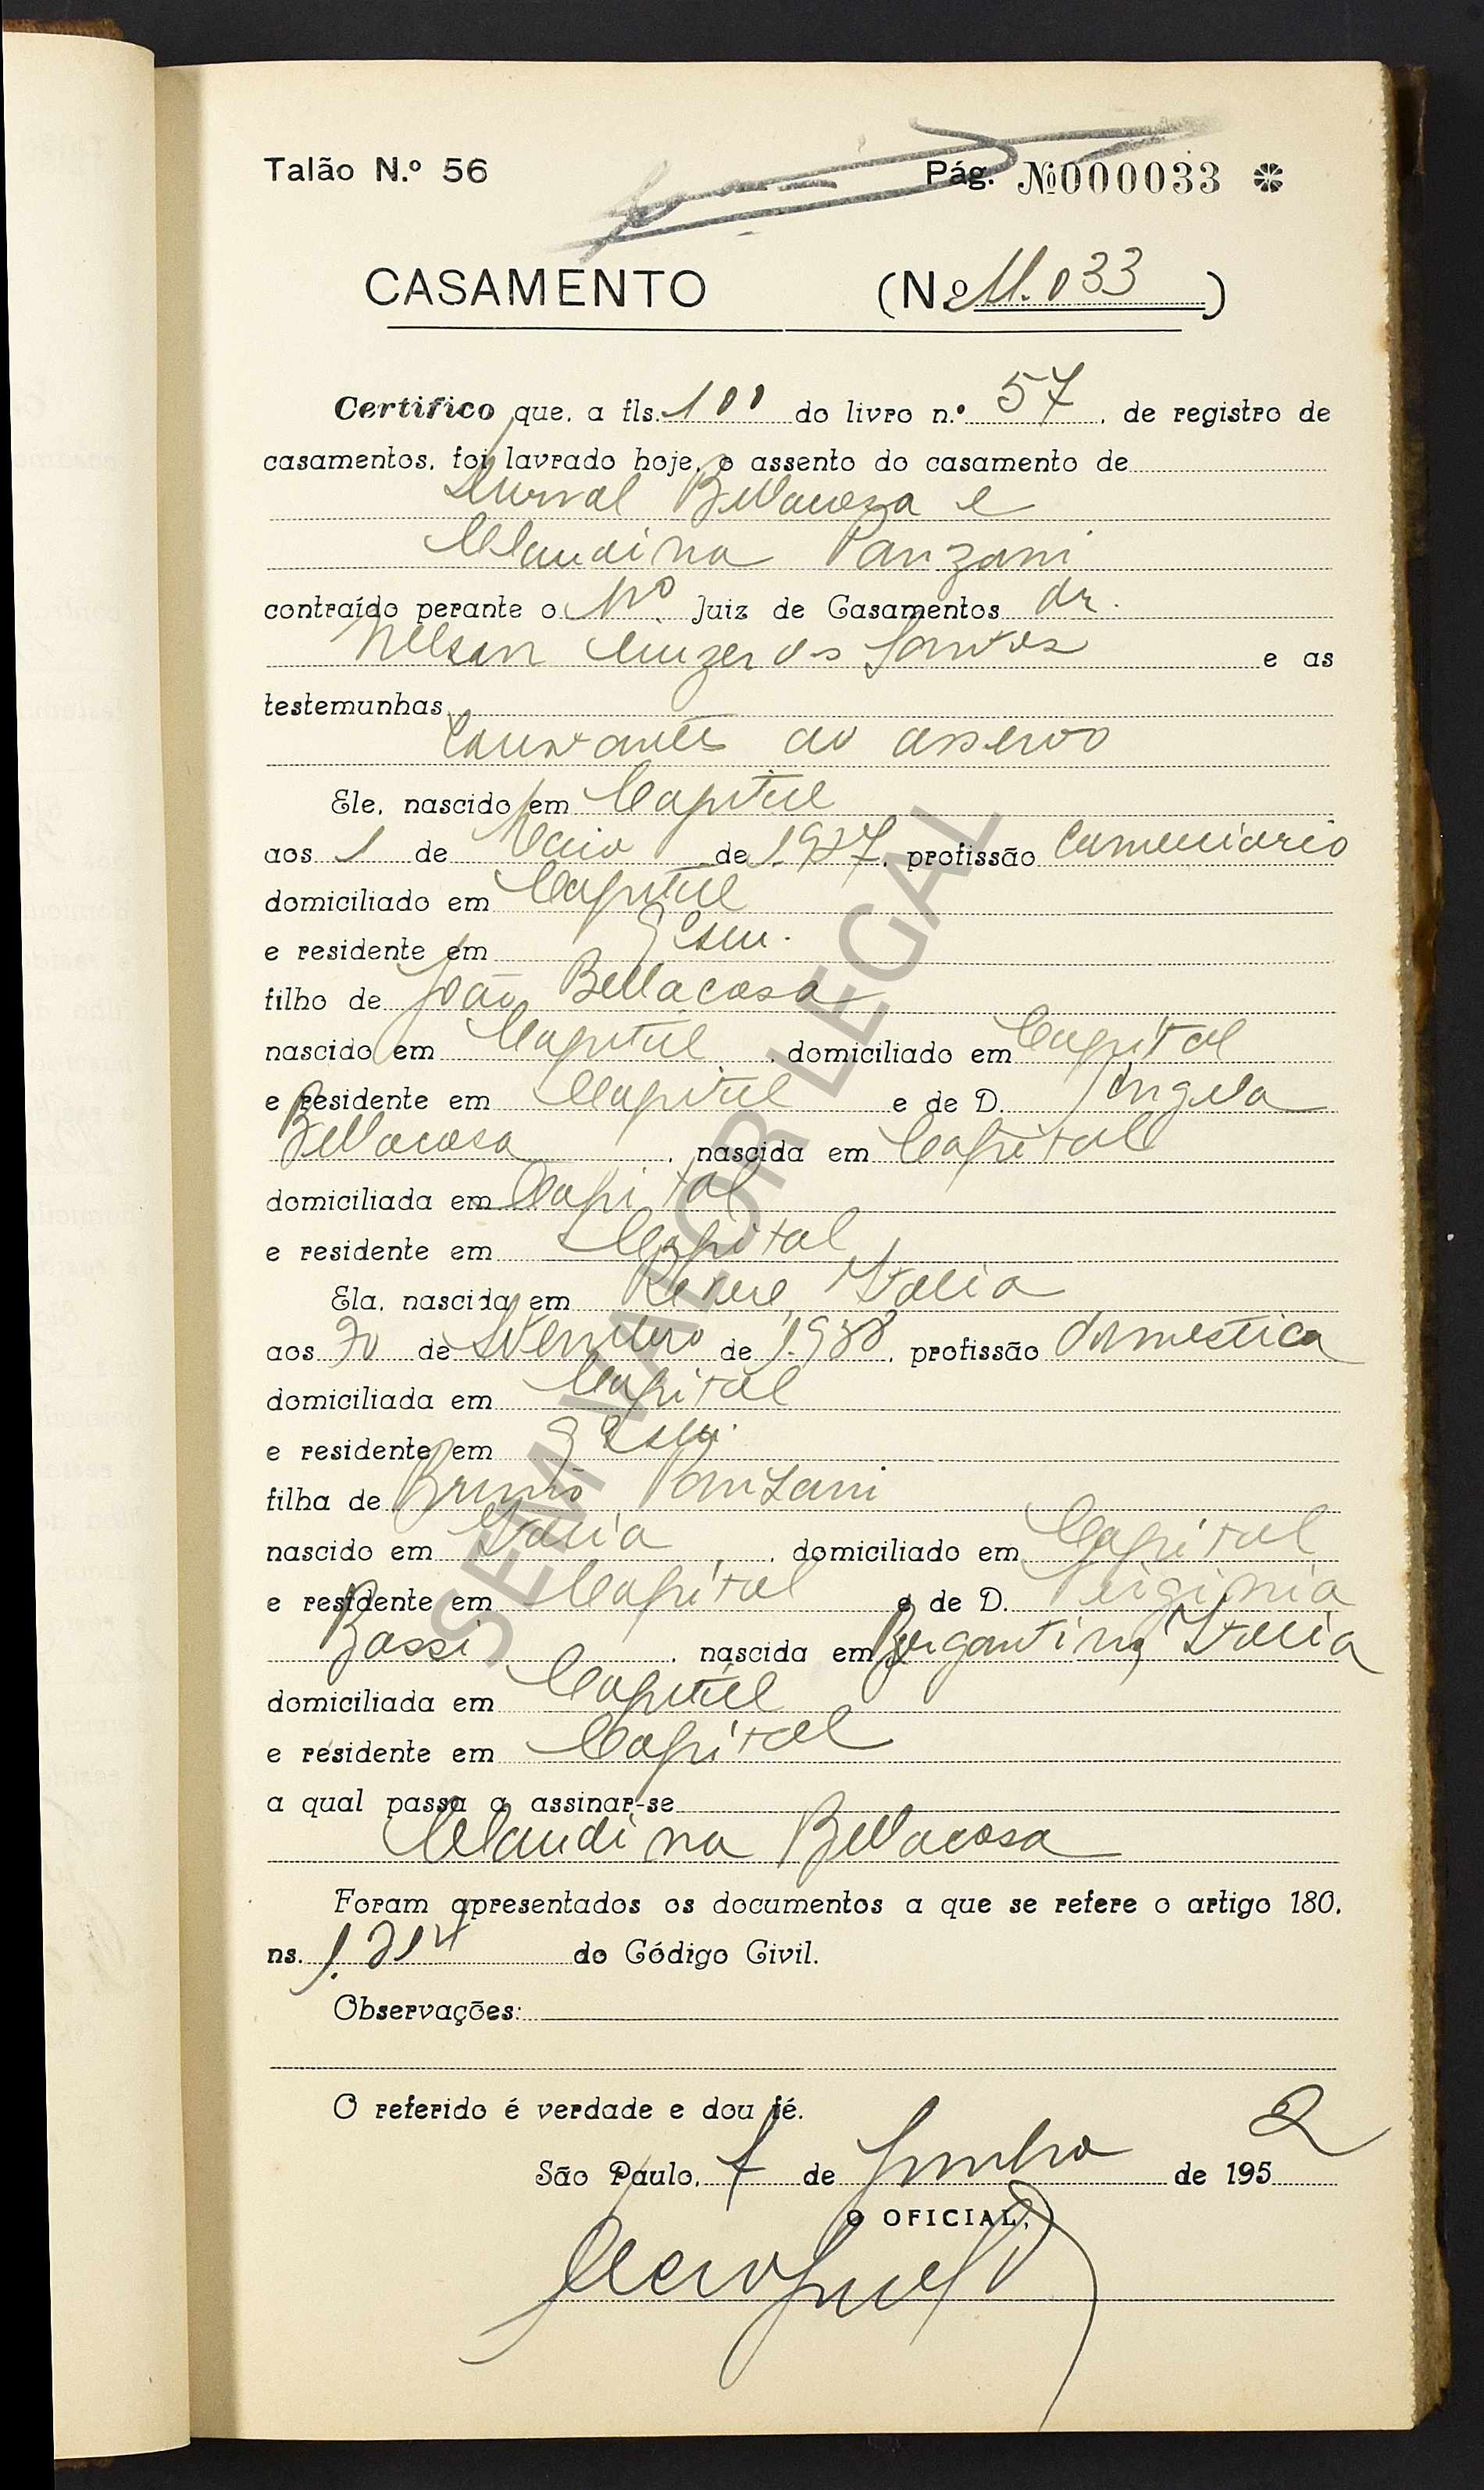 Talão N.º 56 Pág. №000033
CASAMENTO (N.º 11.033)
Certifico que, a fls. 100 do livro n.º 57, de registro de
casamentos, foi lavrado hoje, o assento do casamento de
Durval Bellacoza e
Claudina Panzani
contraído perante o Juiz de Casamentos dr.
Nelson dos Santos e as
testemunhas
constantes do assento
Ele, nascido em Capital
aos 1 de Maio de 1927, profissão Comerciario
domiciliado em Capital
e residente em
filho de João Bellacosa
nascido em Capital, domiciliado em Capital
e residente em Capital e de D. Angela
Bellacosa, nascida em Capital
domiciliada em Capital
e residente em Capital
Ela, nascida em Revere, Italia
aos de Setembro de, profissão domestica
domiciliada em Capital
e residente em
filha de Bruno Panzani
nascido em Italia, domiciliado em Capital
e residente em Capital e de D. Virginia
Bassi, nascida em Bergantino, Italia
domiciliada em Capital
e residente em Capital
a qual passa a assinar-se
Claudina Bellacosa
Foram apresentados os documentos a que se refere o artigo 180,
ns. 1.214 do Código Civil.
Observações:
O referido é verdade e dou fé.
São Paulo, 7 de Junho de 1952
O OFICIAL,
SEM VALOR LEGAL